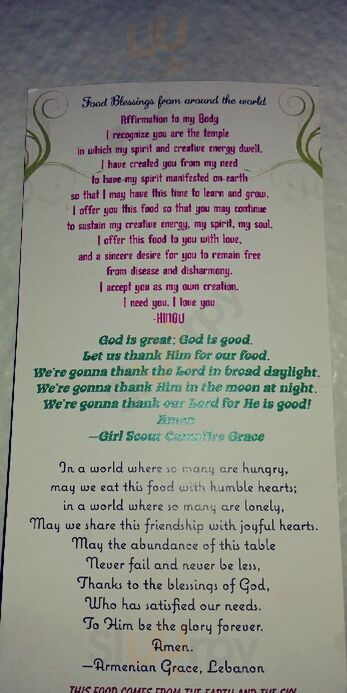 Food Blessings from around the world
Affirmation to my Body
I recognize you are the temple
in which my spirit and creative energy dwell.
I have created you from my need
to have my spirit manifested on earth
so that I may have this time to learn and grow.
I offer you this food so that you may continue
to sustain my creative energy, my spirit, my soul.
I offer this food to you with love,
and a sincere desire for you to remain free
from disease and disharmony.
I accept you as my own creation.
I need you. I love you
-HINDU
God is great; God is good.
Let us thank Him for our food.
We're gonna thank the Lord in broad daylight.
We're gonna thank Him in the moon at night.
We're gonna thank our Lord for He is good!
Amen
—Girl Scout Campfire Grace
In a world where so many are hungry,
may we eat this food with humble hearts;
in a world where so many are lonely,
May we share this friendship with joyful hearts.
May the abundance of this table
Never fail and never be less,
Thanks to the blessings of God,
Who has satisfied our needs.
To Him be the glory forever.
Amen.
—Armenian Grace, Lebanon
THIS FOOD COMES FROM THE EARTH AND THE SKY